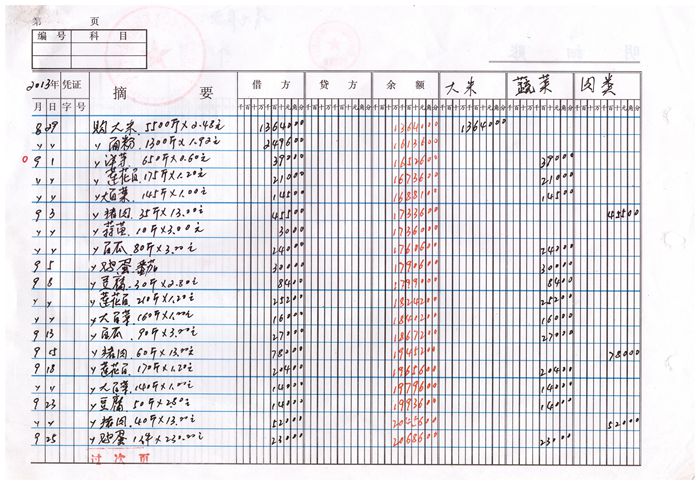 第 页
编号 科目
2013年 凭证 摘要 借方 贷方 余额 大米 蔬菜 肉类
月 日 字 号 千百十万千百十元角分 千百十万千百十元角分 千百十万千百十元角分 千百十万千百十元角分 千百十万千百十元角分 千百十万千百十元角分
8 29 购大米 5500斤×2.48元 1364000 1364000 1364000
〃 〃 〃面粉 1300斤×1.92元 249600 1613600
9 1 〃洋芋 650斤×0.60元 39000 1652600 39000
〃 〃 〃莲花白 175斤×1.20元 21000 1673600 21000
〃 〃 〃大白菜 145斤×1.00元 14500 1688100 14500
9 3 〃猪肉 35斤×13.00元 45500 1733600 45500
〃 〃 〃蒜苗 10斤×3.00元 3000 1736600
〃 〃 〃西瓜 80斤×3.00元 24000 1760600 24000
9 5 〃鸡蛋 番茄 30000 1790600 30000
9 8 〃豆腐 30斤×2.80元 8400 1799000 8400
〃 〃 〃莲花白 210斤×1.20元 25200 1824200 25200
〃 〃 〃大白菜 160斤×1.00元 16000 1840200 16000
9 13 〃西瓜 90斤×3.00元 27000 1867200 27000
9 15 〃猪肉 60斤×13.00元 78000 1945200 78000
9 18 〃莲花白 170斤×1.20元 20400 1965600 20400
〃 〃 〃大白菜 140斤×1.00元 14000 1979600 14000
9 23 〃豆腐 50斤×2.80元 14000 1993600 14000
〃 〃 〃猪肉 40斤×13.00元 52000 2045600 52000
9 25 〃鸡蛋 1件×230.00元 23000 2068600 23000
过次页